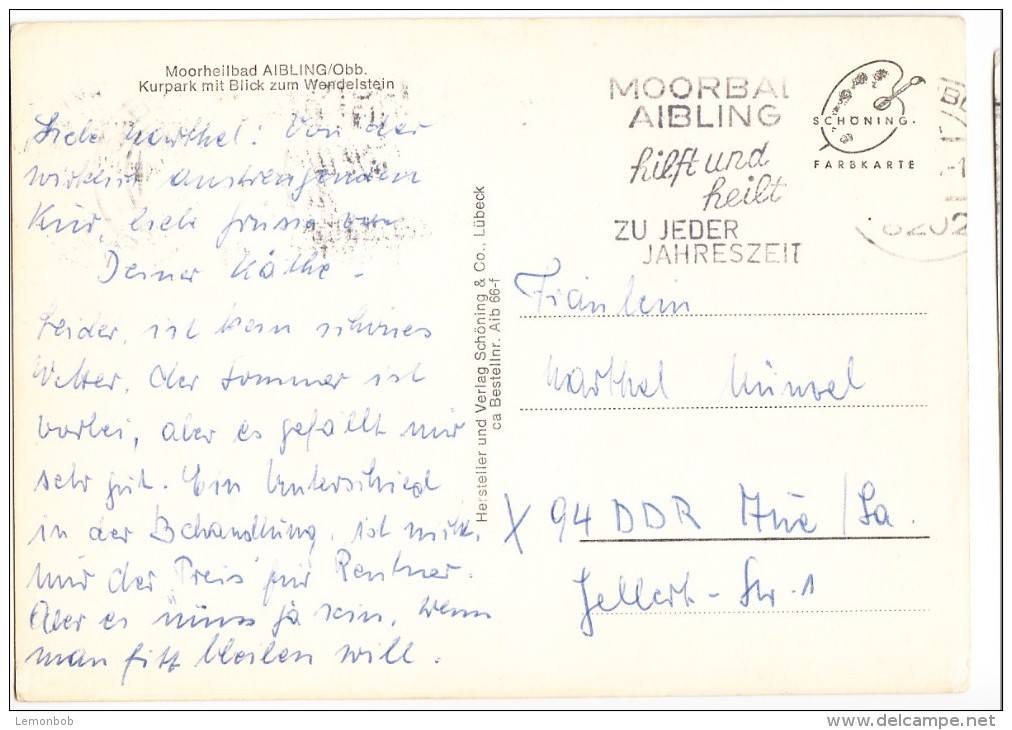 Moorheilbad AIBLING/Obb.
Kurpark mit Blick zum Wendelstein
Liebe Marthel! Von der
wirklich anstrengenden
Kur, liebe Grüsse von
Deiner Käthe -
Leider, ist kein schönes
Wetter, der Sommer ist
vorbei, aber es gefällt mir
sehr gut. Ein Unterschied
in der Behandlung, ist nicht,
nur der Preis für Rentner.
Aber es muss ja sein, wenn
man fitt bleiben will.
Hersteller und Verlag Schöning & Co., Lübeck
ca Bestellnr. Aib 66-f
MOORBAD
AIBLING
hilft und
heilt
ZU JEDER
JAHRESZEIT
SCHÖNING.
FARBKARTE
8202
Fräulein
Marthel
X 94 DDR Aue /Sa.
Gellert-Str. 1
Lemonbob
www.delcampe.net